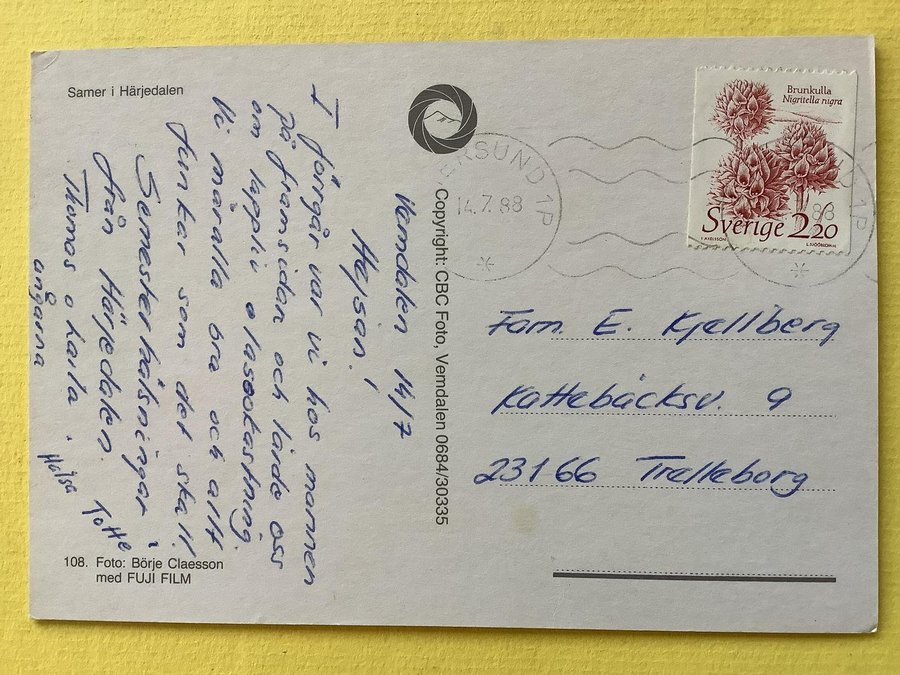 Samer i Härjedalen
Vemdalen 14/7
Hejsan!
I förrgår var vi hos mannen
på framsidan och lärde oss
om lappliv o lasso
Vi mår alla bra och allt
funkar som det skall.
Semesterhälsningar
från Härjedalen.
Thomas o
ungarna
Hälsa Totte
108. Foto: Börje Claesson
med FUJI FILM
Copyright: CBC Foto, Vemdalen 0684/30335
Brunkulla
Nigritella nigra
Sverige 2.20
RSUND 1P
14.7.88
Fam. E. Kjellberg
Kattebäcksv. 9
23166 Trelleborg